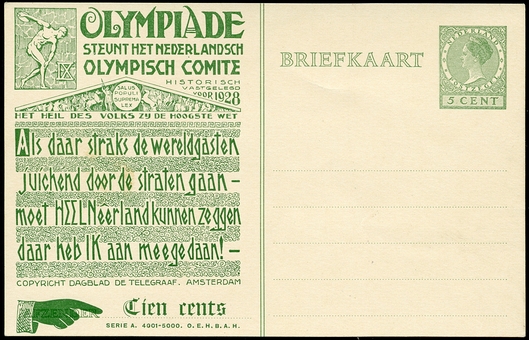 OLYMPIADE
STEUNT HET NEDERLANDSCH
OLYMPISCH COMITE
HISTORISCH
VASTGELEGD
VOOR 1928
IX
SALUS
POPULI
SUPPREMA
LEX
HET HEIL DES VOLKS ZY DE HOOGSTE WET
Als daar straks de wereldgasten
juichend door de straten gaan —
moet HEEL Neêrland kunnen zeggen
daar heb IK aan meegedaan! —
COPYRIGHT DAGBLAD DE TELEGRAAF. AMSTERDAM
AFZENDER
Cien cents
SERIE A. 4901-5000. O.E.H.B.A.H.
BRIEFKAART
NEDERLAND
5 CENT